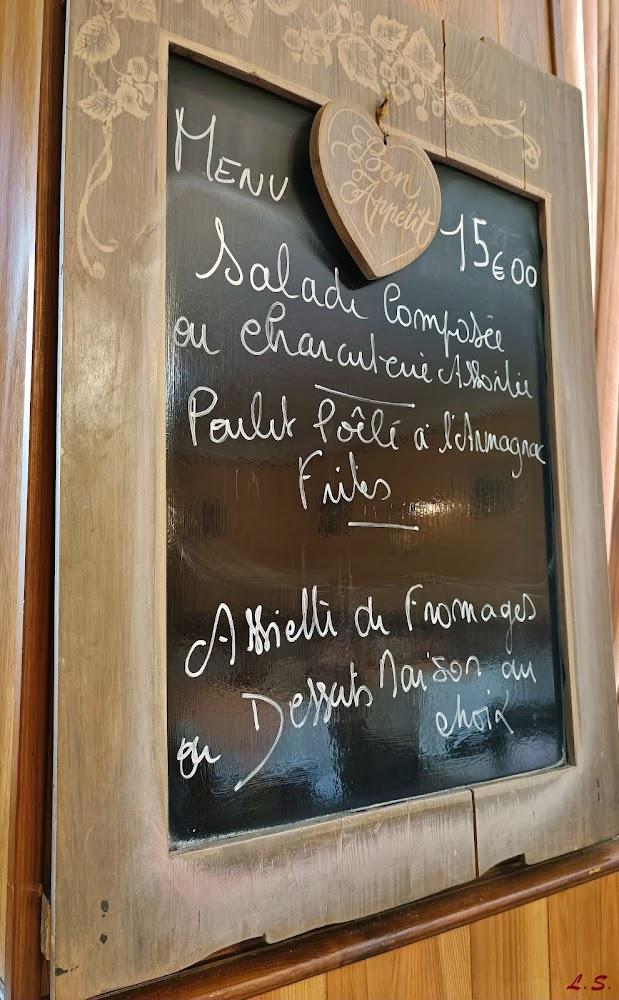 Bon
Appétit
MENU
15€00
Salade Composée
ou Charcuterie Assortie
Poulet Poêlé à l'Armagnac
Frites
Assiette de Fromages
ou Desserts Maison au
choix
L.S.